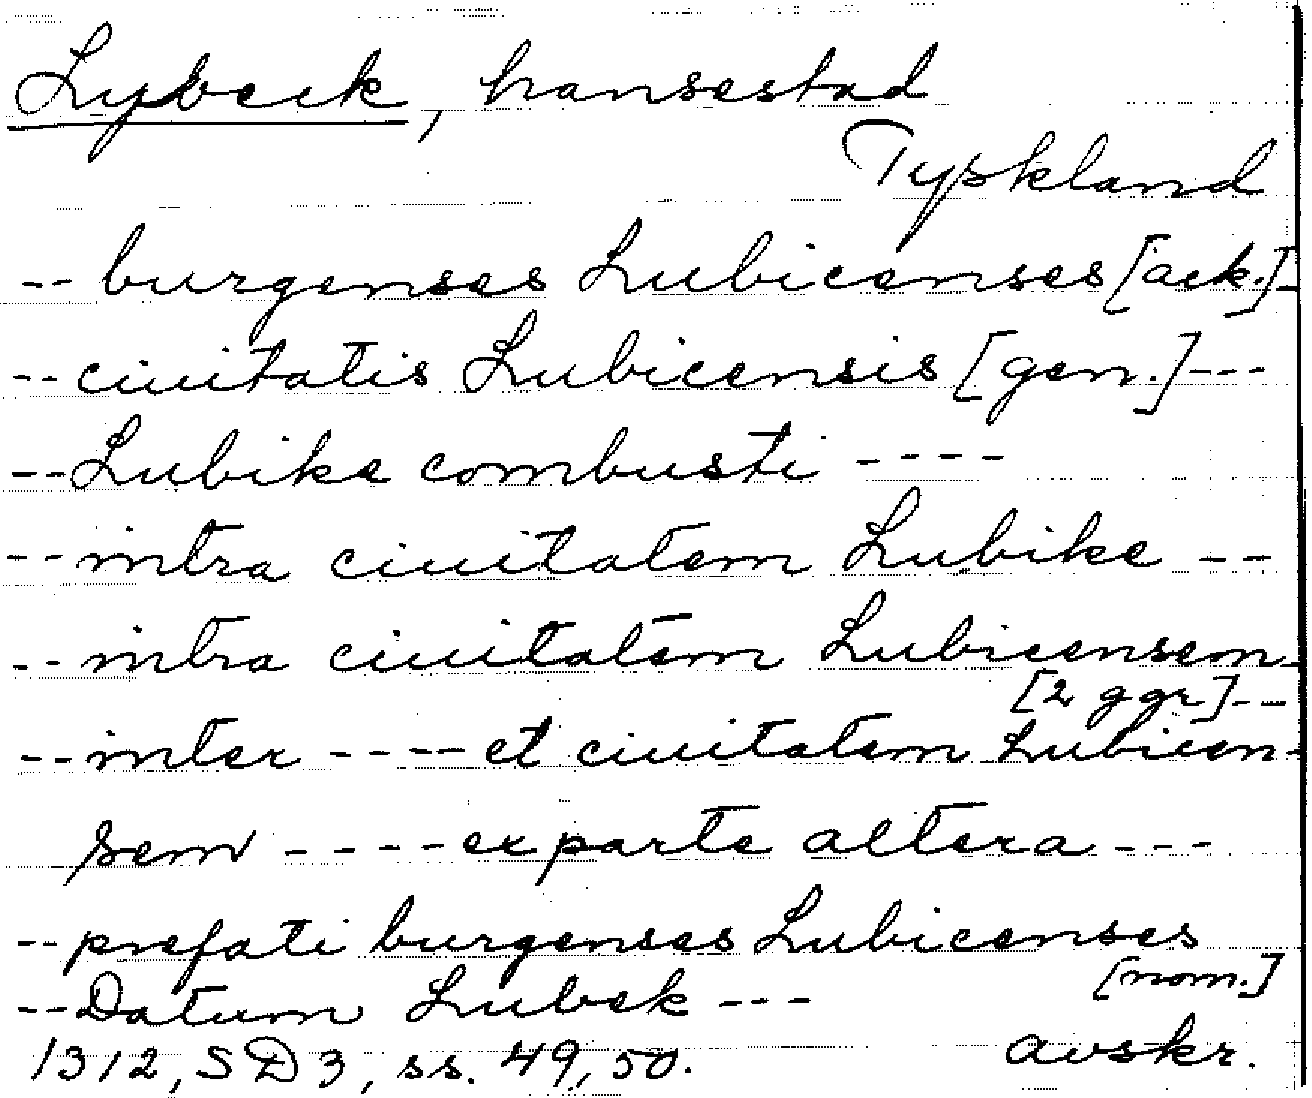 Lybeck, hansestad
Tyskland
-- burgenses Lubicenses [ack.]-
-- ciuitatis Lubicensis [gen.] ---
-- Lubike combusti ----
-- intra ciuitatem Lubike --
-- intra ciuitatem Lubicensem-
[2 ggr] --
-- inter ---- et ciuitatem Lubicen-
sem ---- ex parte altera ---
-- prefati burgenses Lubicenses
[nom.]
-- Datum Lubek ---
1312, SD3, ss. 49, 50. avskr.